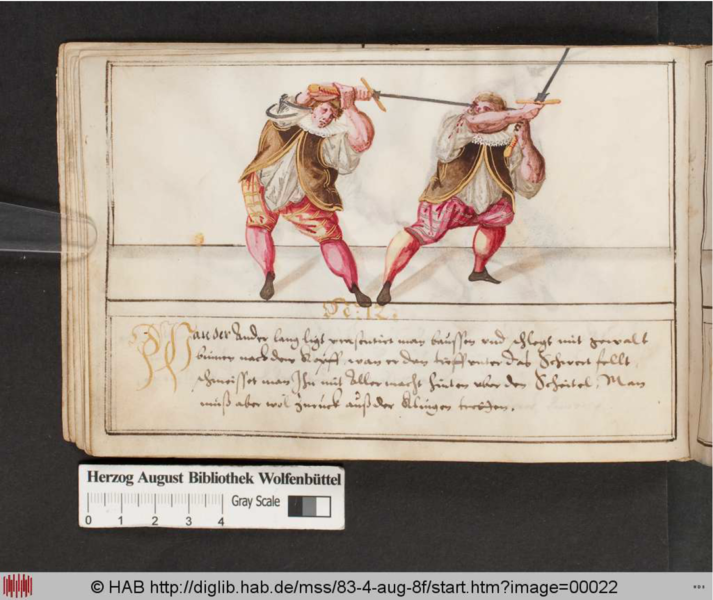 N: 12.
Wan der Ander lang ligt praesentirt man daussen und schlegt mit gewalt
binnen nach dem Kopff, wan er dan tieff unter das Schwert fellt
schmeisset man Ihn mit Aller macht hinten uber den Scheitel. Man
muß aber wol zuruck auß der Klingen tretten.
Herzog August Bibliothek Wolfenbüttel
Gray Scale
0 1 2 3 4
© HAB http://diglib.hab.de/mss/83-4-aug-8f/start.htm?image=00022